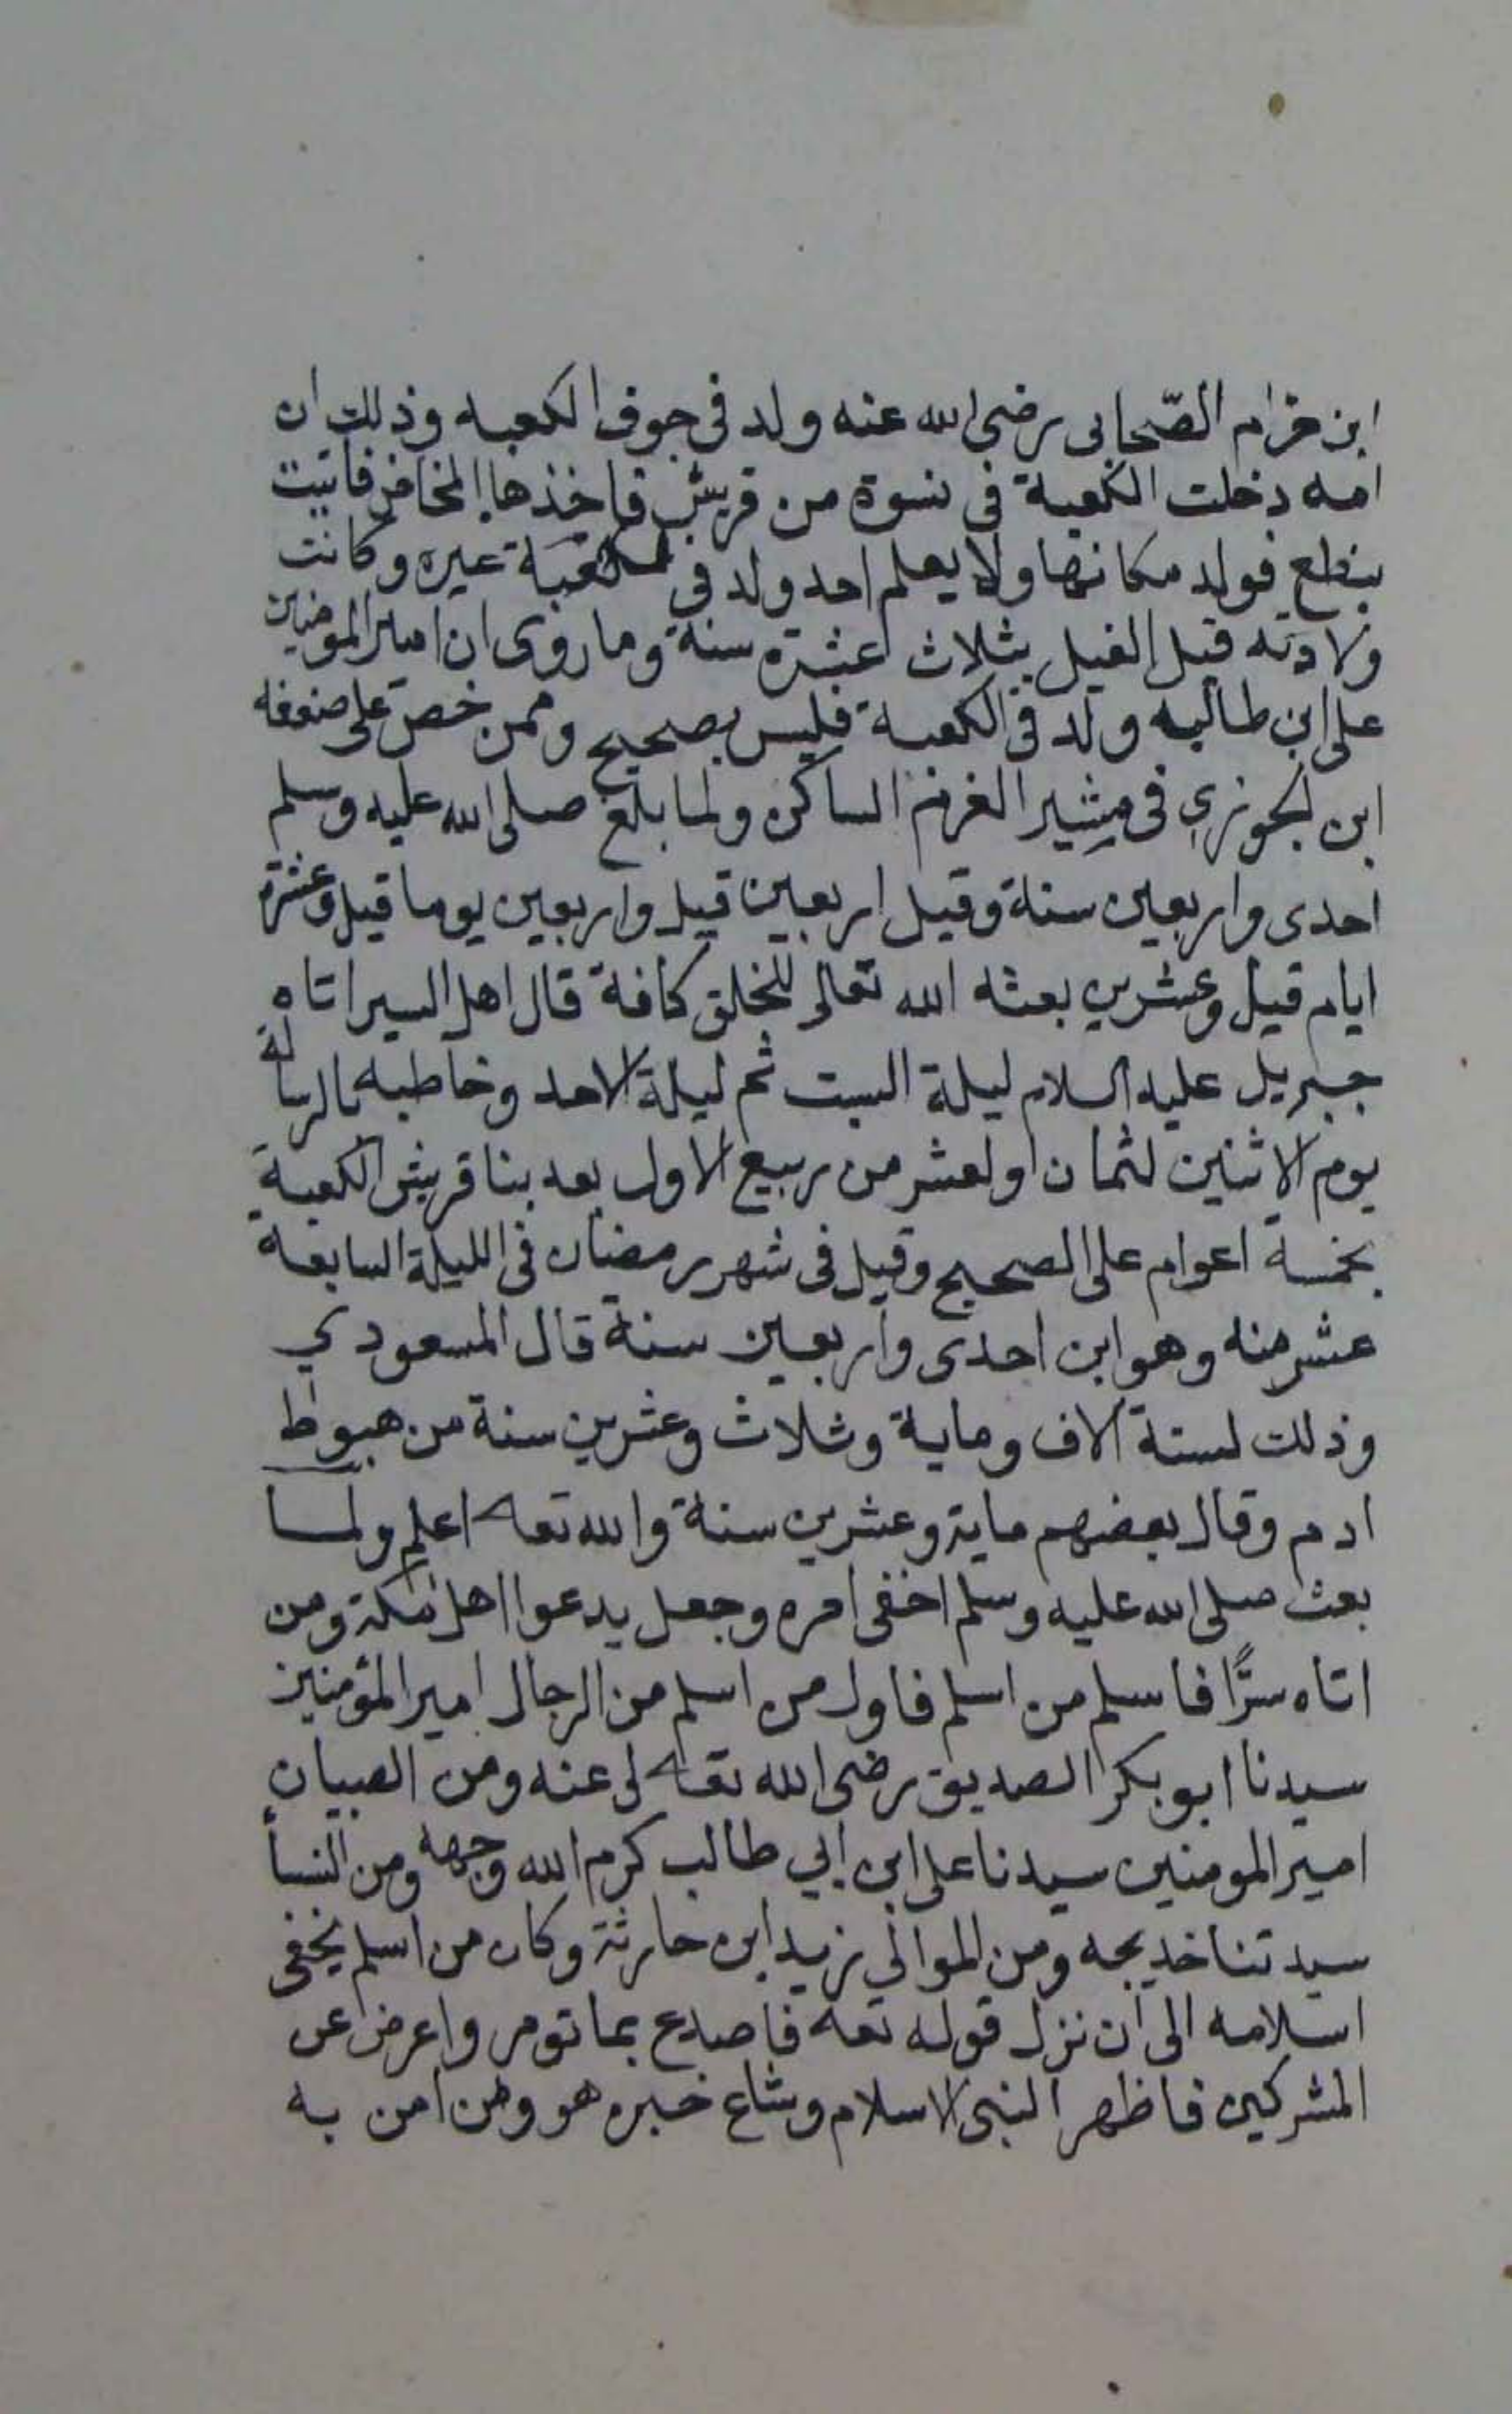 ابن حزام الصّحابى رضى الله عنه ولد فى جوف الكعبه وذلك ان
امه دخلت الكعبة فى نسوة من قريش فاخذها المخاض فاتيت
بنطع فولد مكانها ولا يعلم احد ولد فى الكعبة غيره وكانت
ولادته قبل الفيل بثلاث عشرة سنة وما روى ان امير المومنين
على ابن طالب ولد فى الكعبة فليس بصحيح وممن خص على ضعفه
ابن الجوزي فى مثير الغرم الساكن ولما بلغ صلى الله عليه وسلم
احدى واربعين سنة وقيل اربعين قيل واربعين يوما قيل وعشرة
ايام قيل وعشرين بعثه الله تعالى للخلق كافة قال اهل السير اتاه
جبريل عليه السلام ليلة السبت ثم ليلة الاحد وخاطبه بالرسالة
يوم الاثنين لثمان او لعشر من ربيع الاول بعد بنا قريش الكعبة
بخمسة اعوام على الصحيح وقيل فى شهر رمضان فى الليلة السابعة
عشر منه وهو ابن احدى واربعين سنة قال المسعودي
وذلك لستة الاف وماية وثلاث وعشرين سنة من هبوط
ادم وقال بعضهم ماية وعشرين سنة والله تعا اعلم ولما
بعث صلى الله عليه وسلم اخفى امره وجعل يدعوا اهل مكة ومن
اتاه سرًّا فاسلم من اسلم فاول من اسلم من الرجال امير المؤمنين
سيدنا ابو بكر الصديق رضى الله تعالى عنه ومن الصبيان
امير المومنين سيدنا على ابن ابي طالب كرم الله وجهه ومن النسأ
سيدتنا خديجه ومن الموالي زيد ابن حارثة وكان من اسلم يخفى
اسلامه الى ان نزل قوله تعه فاصدع بما تومر واعرض عن
المشركين فاظهر النبى الاسلام وشاع خبره هو ومن امن به